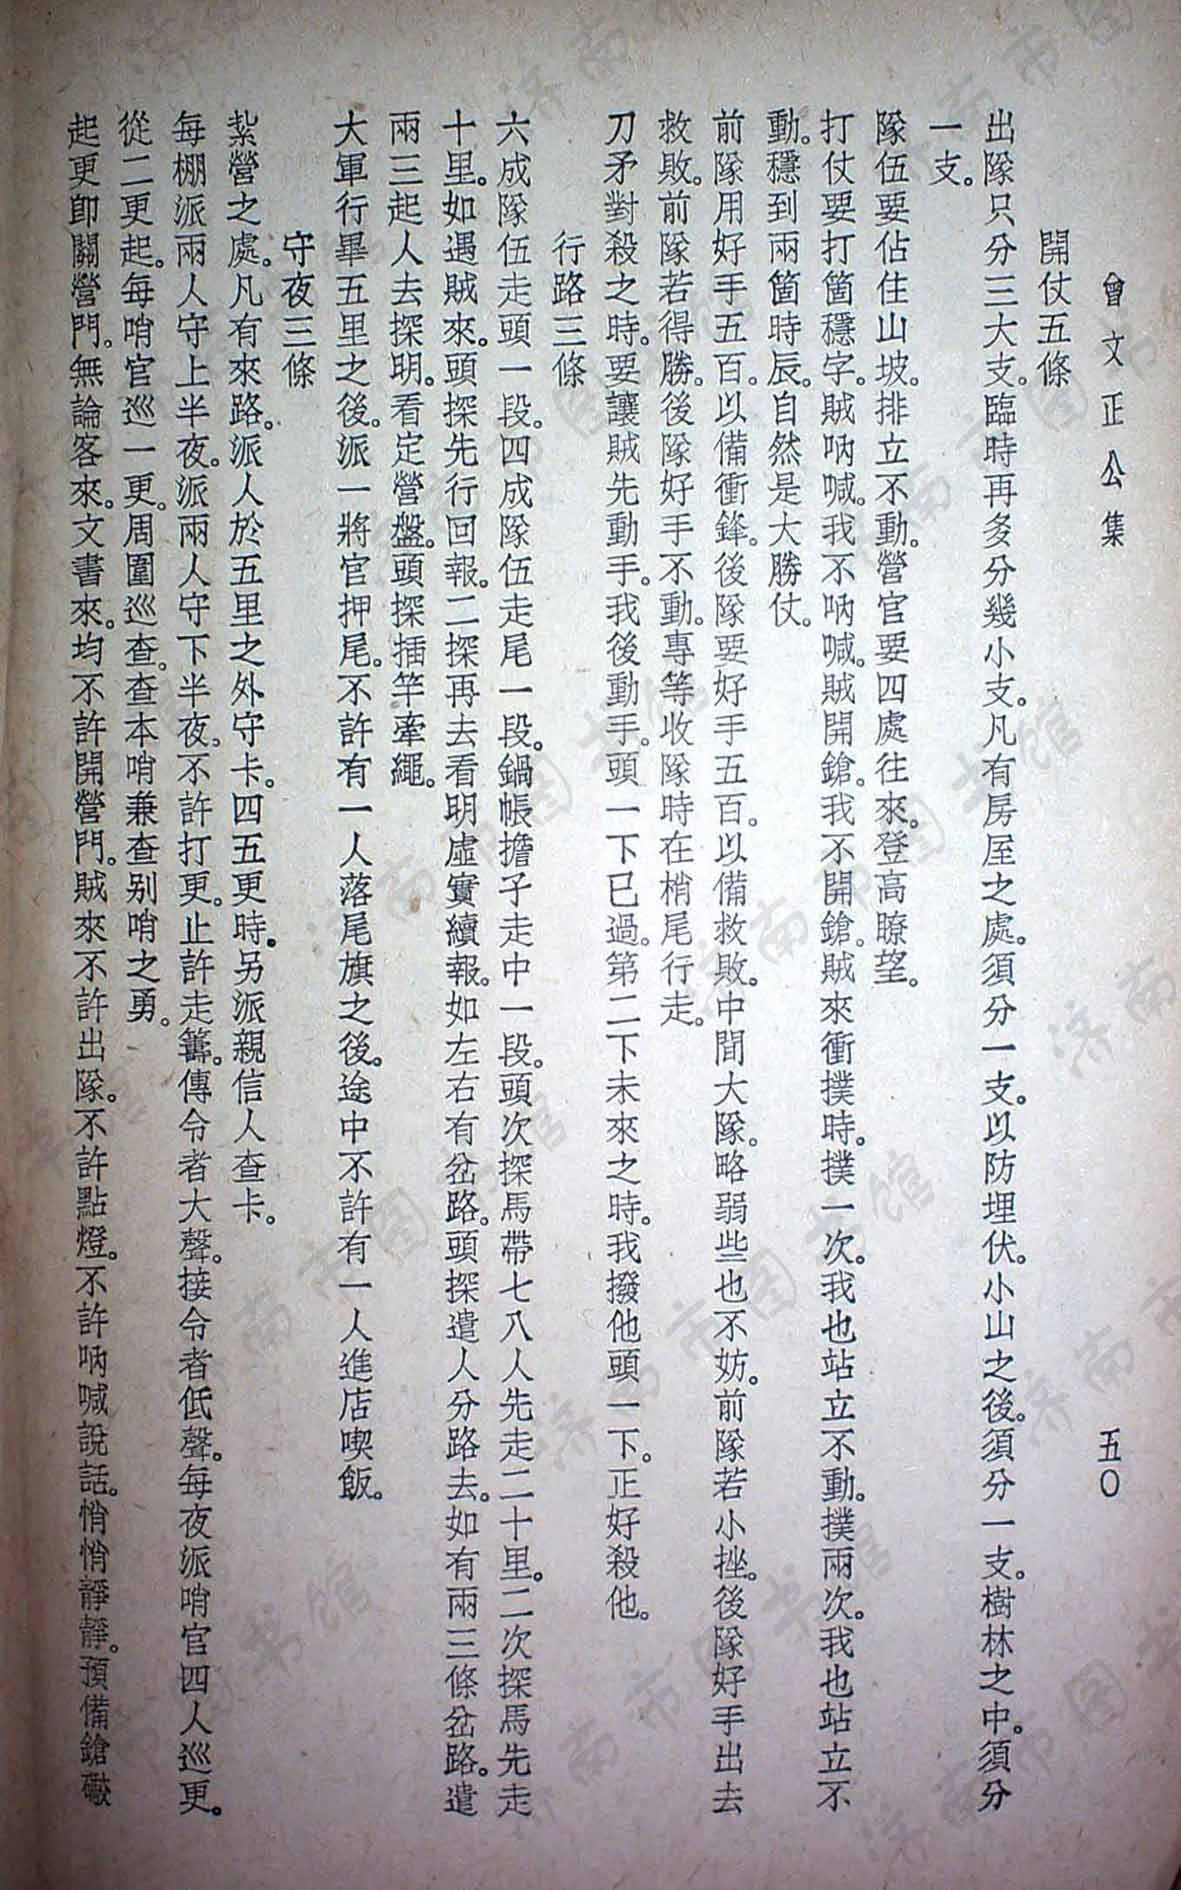 曾文正公集 五〇
開仗五條
出隊只分三大支。臨時再多分幾小支。凡有房屋之處。須分一支。以防埋伏。小山之後。須分一支。樹林之中。須分
一支。
隊伍要佔住山坡。排立不動。營官要四處往來。登高瞭望。
打仗要打箇穩字。賊吶喊。我不吶喊。賊開鎗。我不開鎗。賊來衝撲時。撲一次。我也站立不動。撲兩次。我也站立不
動。穩到兩箇時辰。自然是大勝仗。
前隊用好手五百。以備衝鋒。後隊要好手五百。以備救敗。中間大隊。略弱些也不妨。前隊若小挫。後隊好手出去
救敗。前隊若得勝。後隊好手不動。專等收隊時在梢尾行走。
刀矛對殺之時。要讓賊先動手。我後動手。頭一下已過。第二下未來之時。我撥他頭一下。正好殺他。
行路三條
六成隊伍走頭一段。四成隊伍走尾一段。鍋帳擔子走中一段。頭次探馬帶七八人先走二十里。二次探馬先走
十里。如遇賊來。頭探先行回報。二探再去看明虛實續報。如左右有岔路。頭探遣人分路去。如有兩三條岔路。遣
兩三起人去探明。看定營盤。頭探插竿牽繩。
大軍行畢五里之後。派一將官押尾。不許有一人落尾旗之後。途中不許有一人進店喫飯。
守夜三條
紮營之處。凡有來路。派人於五里之外守卡。四五更時。另派親信人查卡。
每棚派兩人守上半夜。派兩人守下半夜。不許打更。止許走籌。傳令者大聲。接令者低聲。每夜派哨官四人巡更。
從二更起。每哨官巡一更。周圍巡查。查本哨兼查別哨之勇。
起更即關營門。無論客來。文書來。均不許開營門。賊來不許出隊。不許點燈。不許吶喊說話。悄悄靜靜。預備鎗礮
济南市图书馆